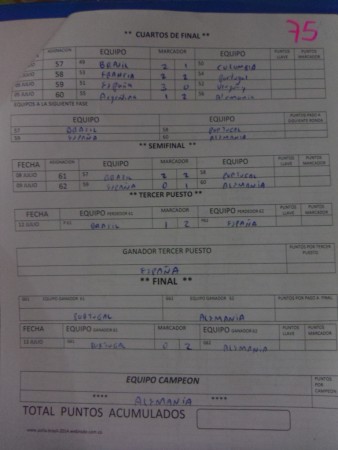 75
** CUARTOS DE FINAL **
ASIGNACION EQUIPO MARCADOR EQUIPO PUNTOS LLAVE PUNTOS MARCADOR
57 49 BRASIL 2 1 COLOMBIA
JULIO 58 FRANCIA Portugal
JULIO 59 España 3 0
JULIO 60 Argentina Alemania
EQUIPOS A LA SIGUIENTE FASE
EQUIPO EQUIPO
57 BRASIL PORTUGAL
ESPAÑA ALEMANIA
** SEMIFINAL **
FECHA ASIGNACION EQUIPO MARCADOR EQUIPO PUNTOS LLAVE PUNTOS MARCADOR
08 JULIO 61 57 BRASIL 58 PORTUGAL
09 JULIO 62 ESPAÑA 0 1 60 ALEMANIA
** TERCER PUESTO **
FECHA EQUIPO PERDEDOR 61 MARCADOR EQUIPO PERDEDOR 62 PUNTOS LLAVE PUNTOS MARCADOR
12 JULIO BRASIL 1 2 ESPAÑA
GANADOR TERCER PUESTO PUNTOS POR TERCER PUESTO
ESPAÑA
** FINAL **
EQUIPO GANADOR 61 EQUIPO GANADOR PUNTOS POR PASO A FINAL
PORTUGAL ALEMANIA
FECHA EQUIPO GANADOR 61 MARCADOR EQUIPO GANADOR 62 PUNTOS LLAVE PUNTOS MARCADOR
13 JULIO PORTUGAL 0 2 ALEMANIA
EQUIPO CAMPEON PUNTOS POR CAMPEON
**** ALEMANIA ****
TOTAL PUNTOS ACUMULADOS